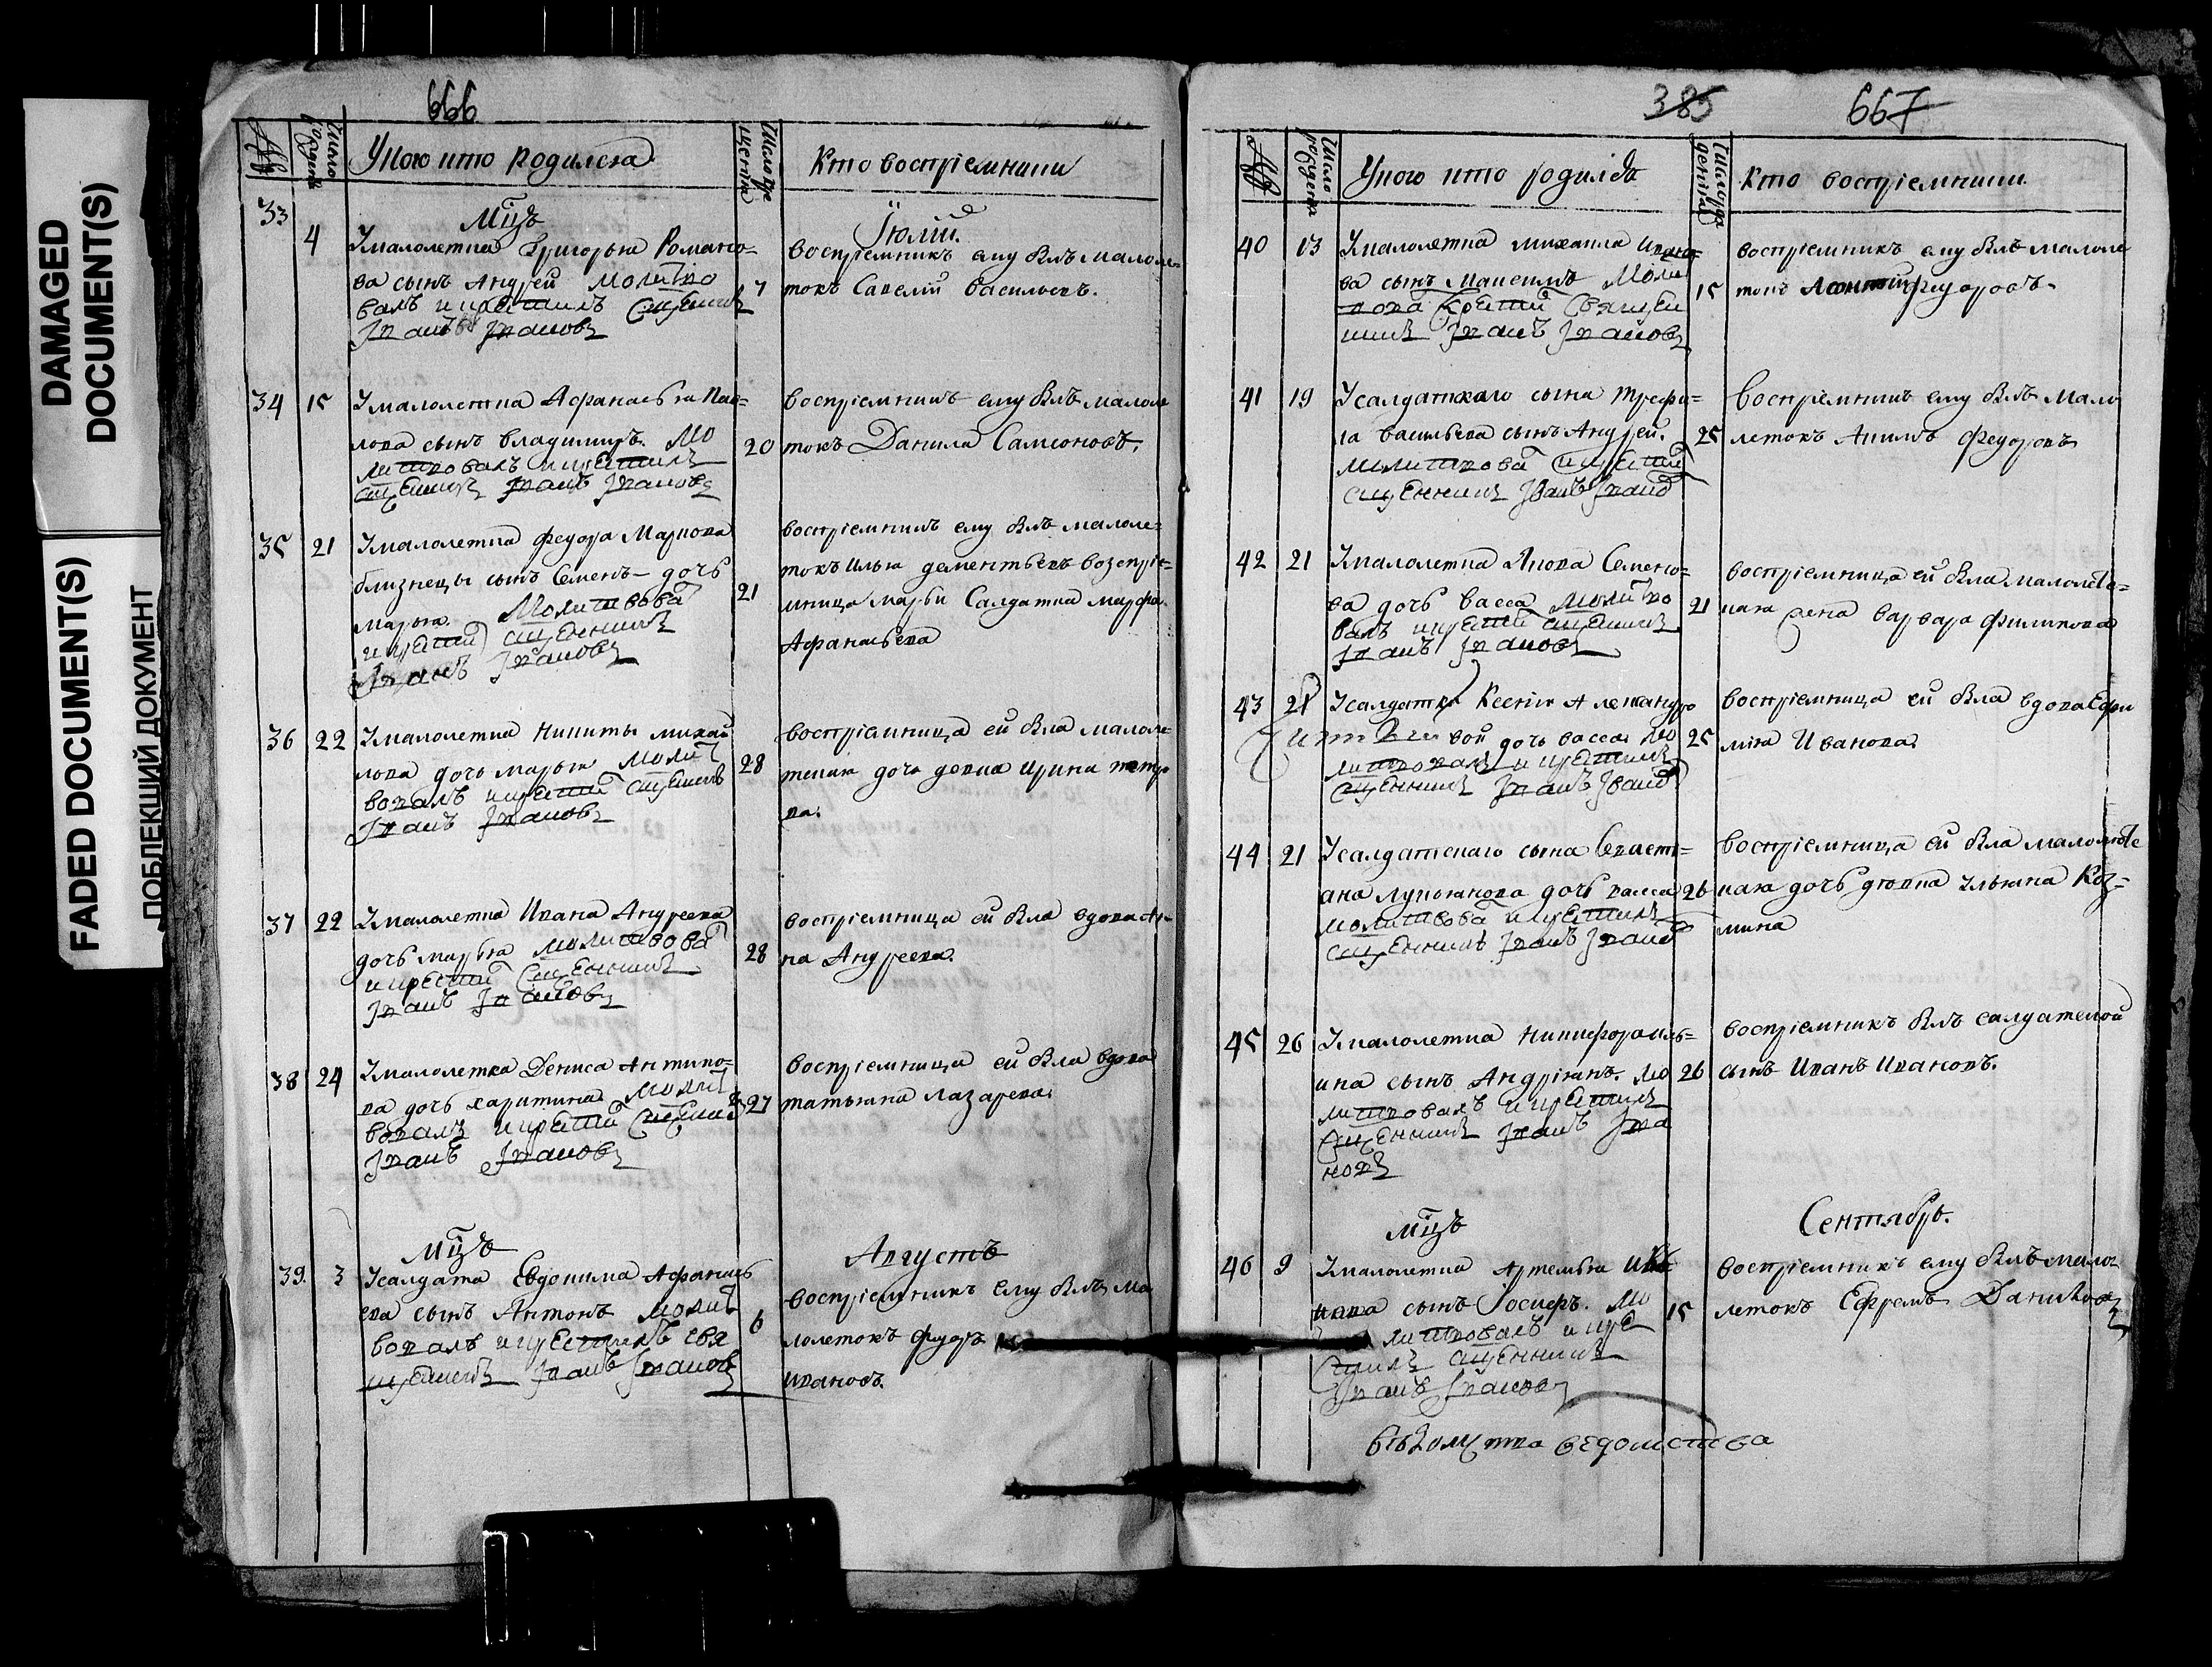 DAMAGED
DOCUMENT(S)
FADED DOCUMENT(S)
ПОБЛЕКШИЙ ДОКУМЕНТ
666
№
Число рожденiя
Укого кто родился
Число крещенiя
Кто воспрiемники
мцъ
Iюлiй.
33
4
Умалолетка Григорья Романо=
ва сынъ Андрей молитво
валъ и крестилъ сщенникъ
Iванъ Iвановъ
7
воспрiемникъ ему былъ малоле=
токъ Савелiй Васильевъ.
34
15
Умалолетка Афанасья Пав=
лова сынъ Владимиръ. мо
литвовалъ и крестилъ
сщенникъ Iванъ Iвановъ
20
воспрiемникъ ему былъ малоле
токъ Данила Самсоновъ.
35
21
Умалолетка Федора Маркова
близнецы сынъ Семенъ - дочь
Марья. молитвова
и крести сщенникъ
Iванъ Iвановъ
21
воспрiемникъ ему былъ малоле=
токъ Илья Дементьевъ возспрiе=
мница Марьи Салдатка Марфа
Афанасьева
36
22
Умалолетка Никиты михай
лова дочь Марья молит
вовалъ и крести сщенникъ
Iванъ Iвановъ
28
воспрiемница ей была малоле=
ткая дочь девка Ирина петро
ва.
37
22
Умалолетка Ивана Андреева
дочь Марья молитвова
и крести сщенникъ
Iванъ Iвановъ
28
воспрiемница ей была вдова Ан=
на Андреева.
38
24
Умалолетка Дениса Антипо=
ва дочь харитина молит
вовалъ и крести сщенникъ
Iванъ Iвановъ
27
воспрiемница ей была вдова
татьяна Лазарева.
мцъ
Августъ
39.
3
Усалдата Евдокима Афанась
ева сынъ Антонъ молит
вовалъ и крестилъ свя
щенникъ Iванъ Iвановъ
6
воспрiемникъ ему былъ ма
лолетокъ Федоръ
Ивановъ.
385
667
№
Число рожденiя
Укого кто родился
Число крещенiя
Кто воспрiемники.
40
13
Умалолетка михаила Ивано=
ва сынъ Максимъ моли
твова крести священ
никъ Iванъ Iвановъ
15
воспрiемникъ ему былъ малоле
токъ Леонтiй Федоровъ.
41
19
Усалдатскаго сына Трефи=
ла васильева сынъ Андрей.
молитвова и крести
сщенникъ Iванъ Iвано
25
воспрiемникъ ему былъ Мало
летокъ Акимъ Федоровъ
42
21
Умалолетка Якова Семено=
ва дочь васса молитво
валъ и крести сщенникъ
Iванъ Iвановъ
21
воспрiемница ей была малолетс=
кая жена варвара Филипова
43
21
Усалдатки Ксенiи Александро
вой дочь васса. мо
литвовалъ и крестилъ
сщенникъ Iванъ Iвано
25
воспрiемница ей была вдова Ефи
мiя Иванова.
44
21
Усалдатскаго сына Севасть=
яна Лукьянова дочь васса
молитвова и крестилъ
сщенникъ Iванъ Iвано
26
воспрiемница ей была малолетс
кая дочь девка Ульяна Коз=
мина
45
26
Умалолетка Никифора Иль=
ина сынъ Андрiянъ. мо
литвовалъ и крестилъ
сщенникъ Iванъ Iва
новъ
26
воспрiемникъ былъ салдатской
сынъ Иванъ Ивановъ.
мцъ
Сентябрь.
46
9
Умалолетка Артемья
сынъ Iосифъ. мо
литвовалъ и кре
стилъ сщенникъ
Iванъ Iвановъ
15
воспрiемникъ ему былъ мало=
летокъ Ефремъ Даниловъ
ведомства